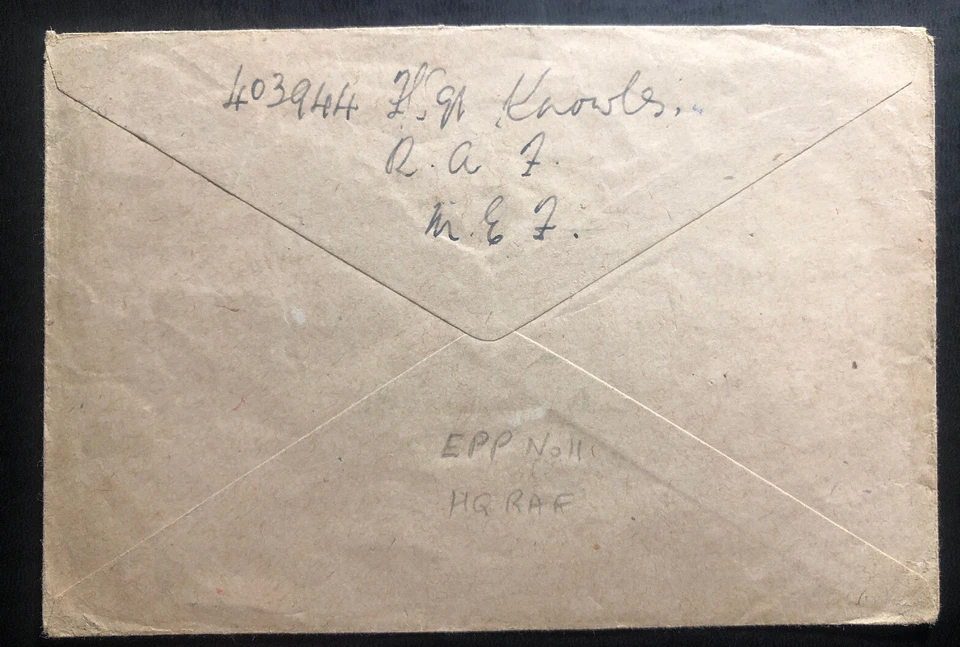 403944 F.Sgt Knowles.
R. A F.
M. E F.
EPP No 11.
HQ RAF